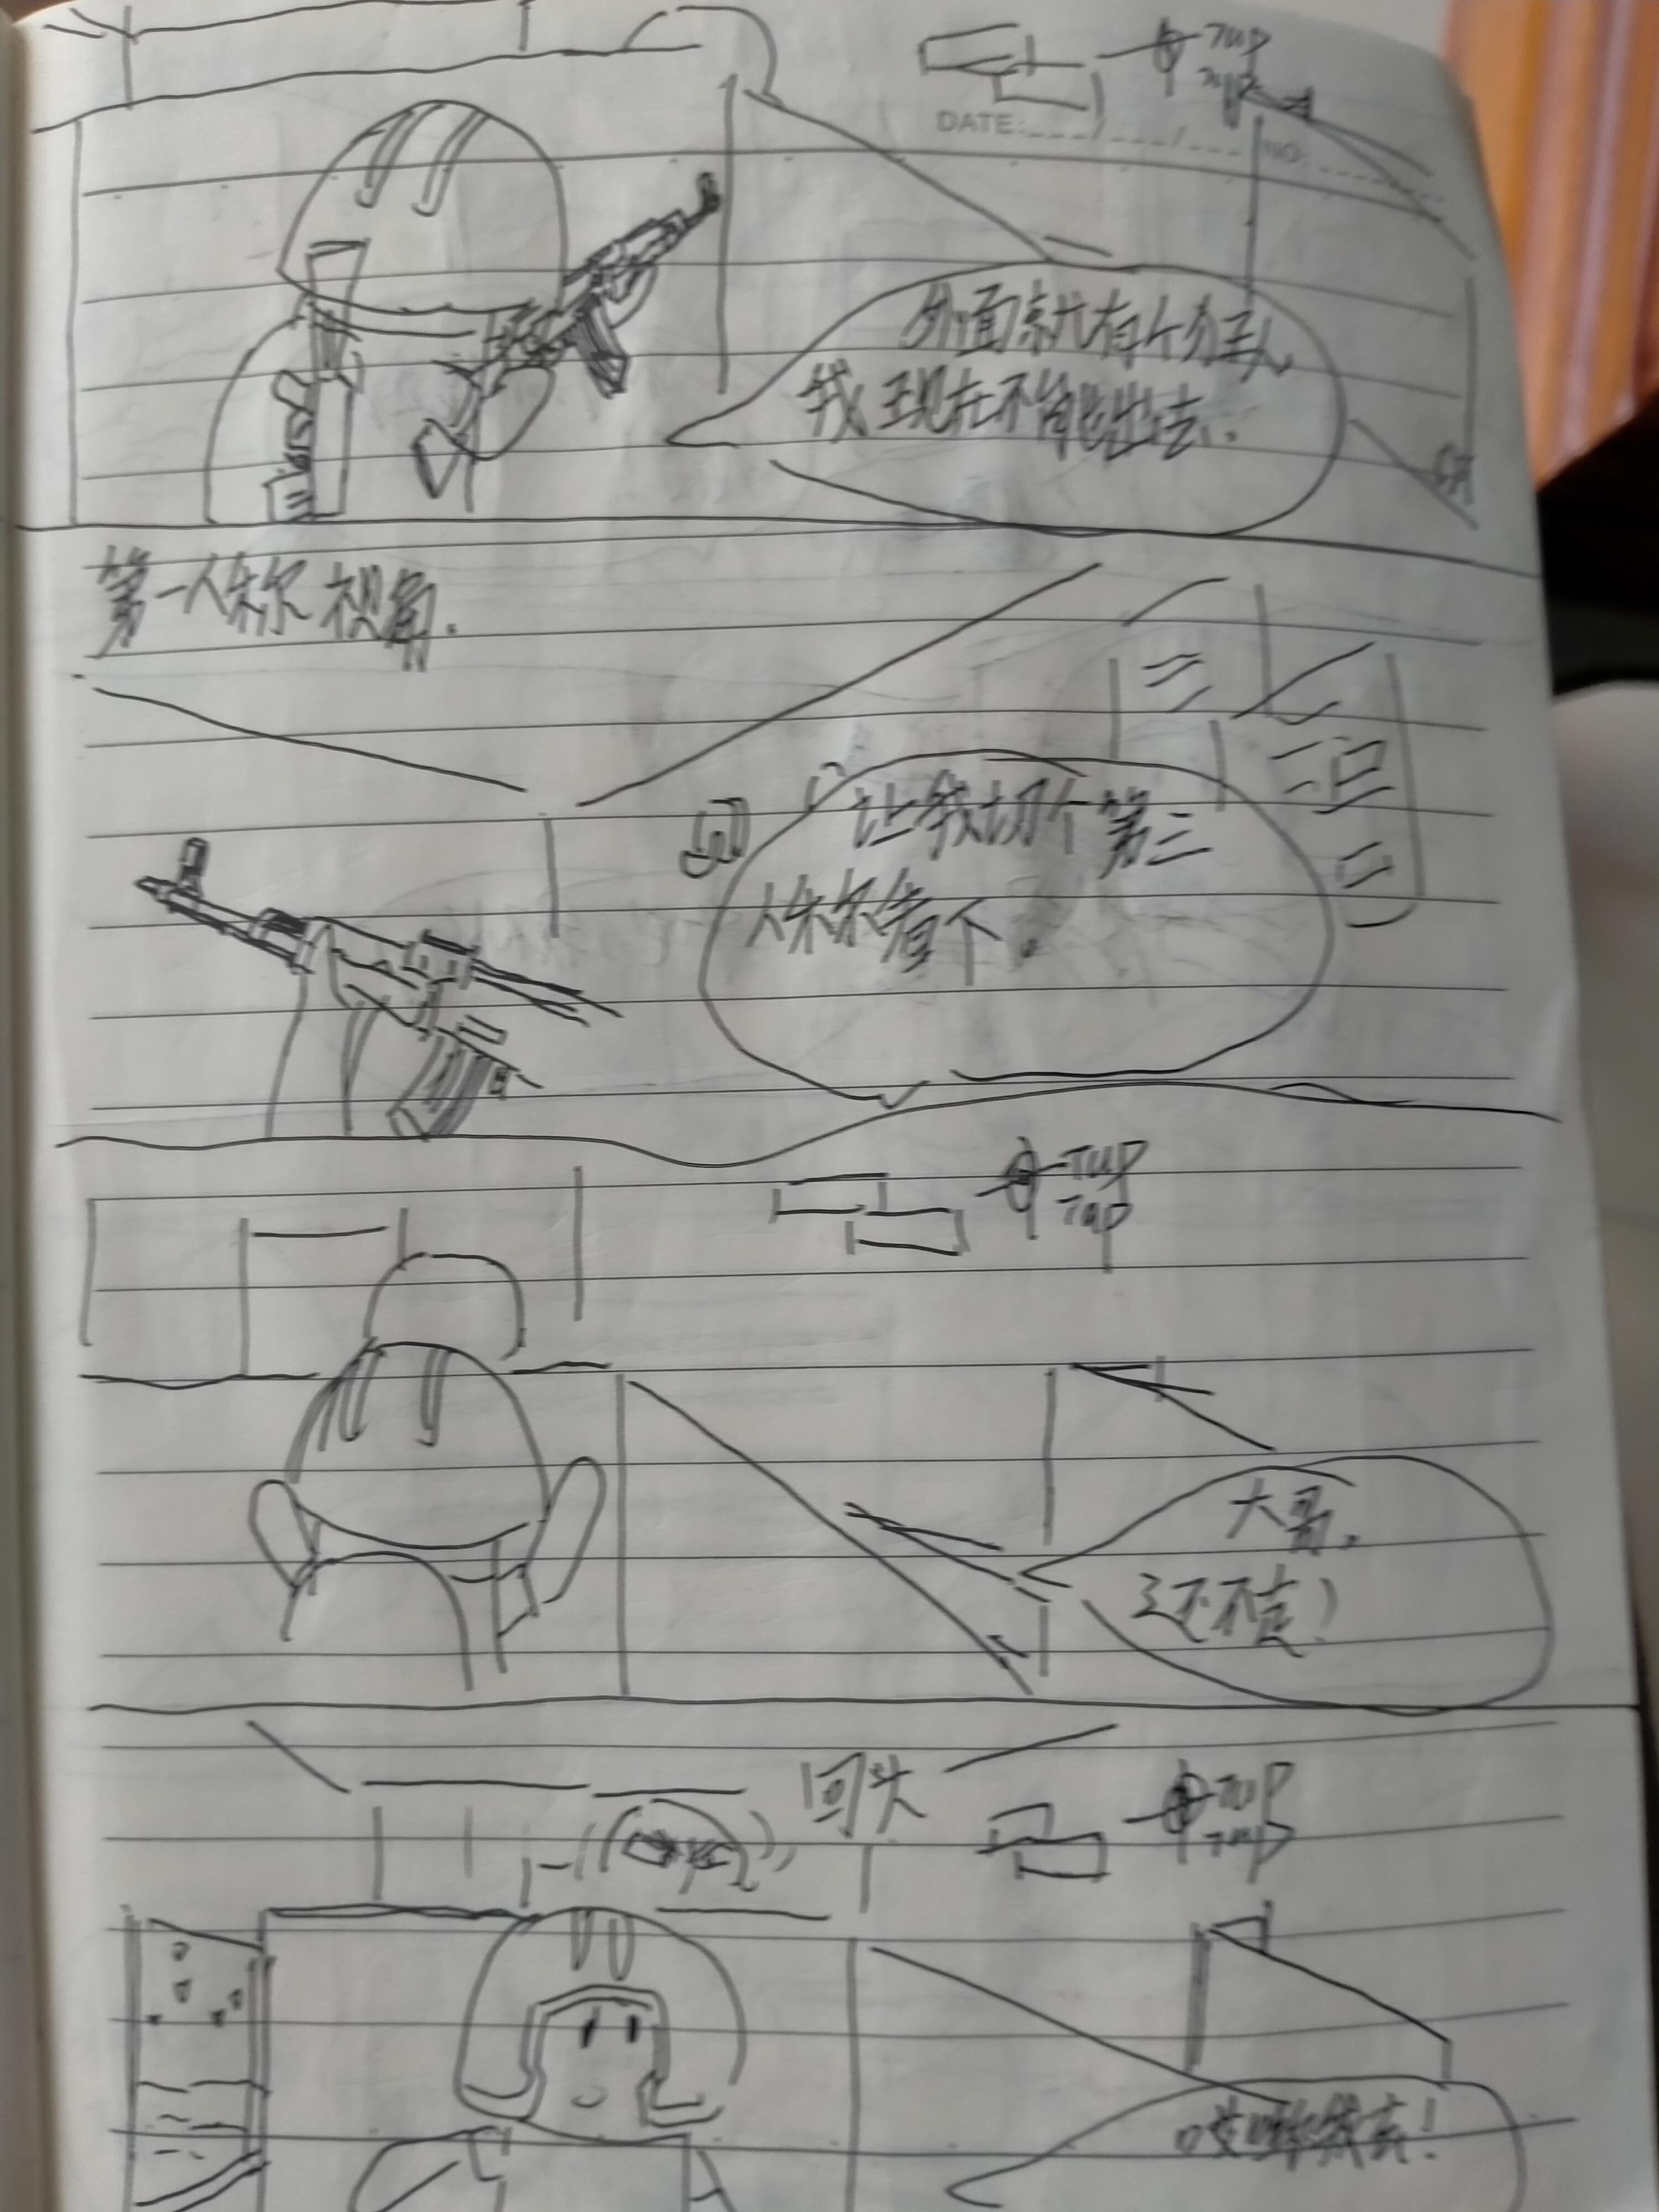 7up
7up
DATE: / / NO:
外面就有个狂人
我现在不能出去.
第一人称视角.
让我切个第三
人称看下.
7up
7up
大哥,
还不走!
回头
7up
7up
哎哟我去!